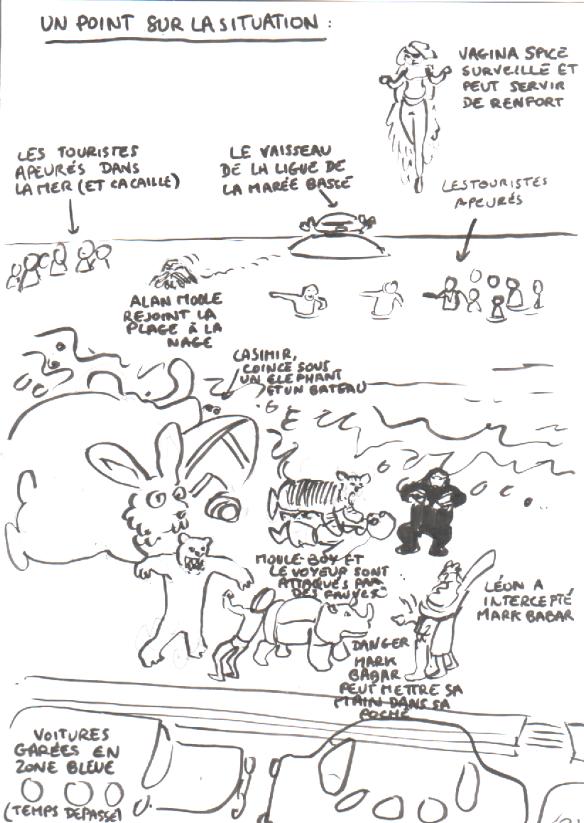 UN POINT SUR LA SITUATION :
VAGINA SPICE
SURVEILLE ET
PEUT SERVIR
DE RENFORT
LES TOURISTES
APEURÉS DANS
LA MER (ET CA CAILLE)
LE VAISSEAU
DE LA LIGUE DE
LA MARÉE BASSE
LES TOURISTES
APEURÉS
ALAN MOOLE
REJOINT LA
PLAGE À LA
NAGE
CASIMIR,
COINCÉ SOUS
UN ELEPHANT
ET UN BATEAU
MOULE-BOY ET
LE VOYEUR SONT
ATTAQUÉS PAR
DES FAUVES
LÉON A
INTERCEPTÉ
MARK BABAR
DANGER
MARK
BABAR
PEUT METTRE SA
MAIN DANS SA
POCHE
VOITURES
GARÉES EN
ZONE BLEUE
(TEMPS DEPASSÉ)